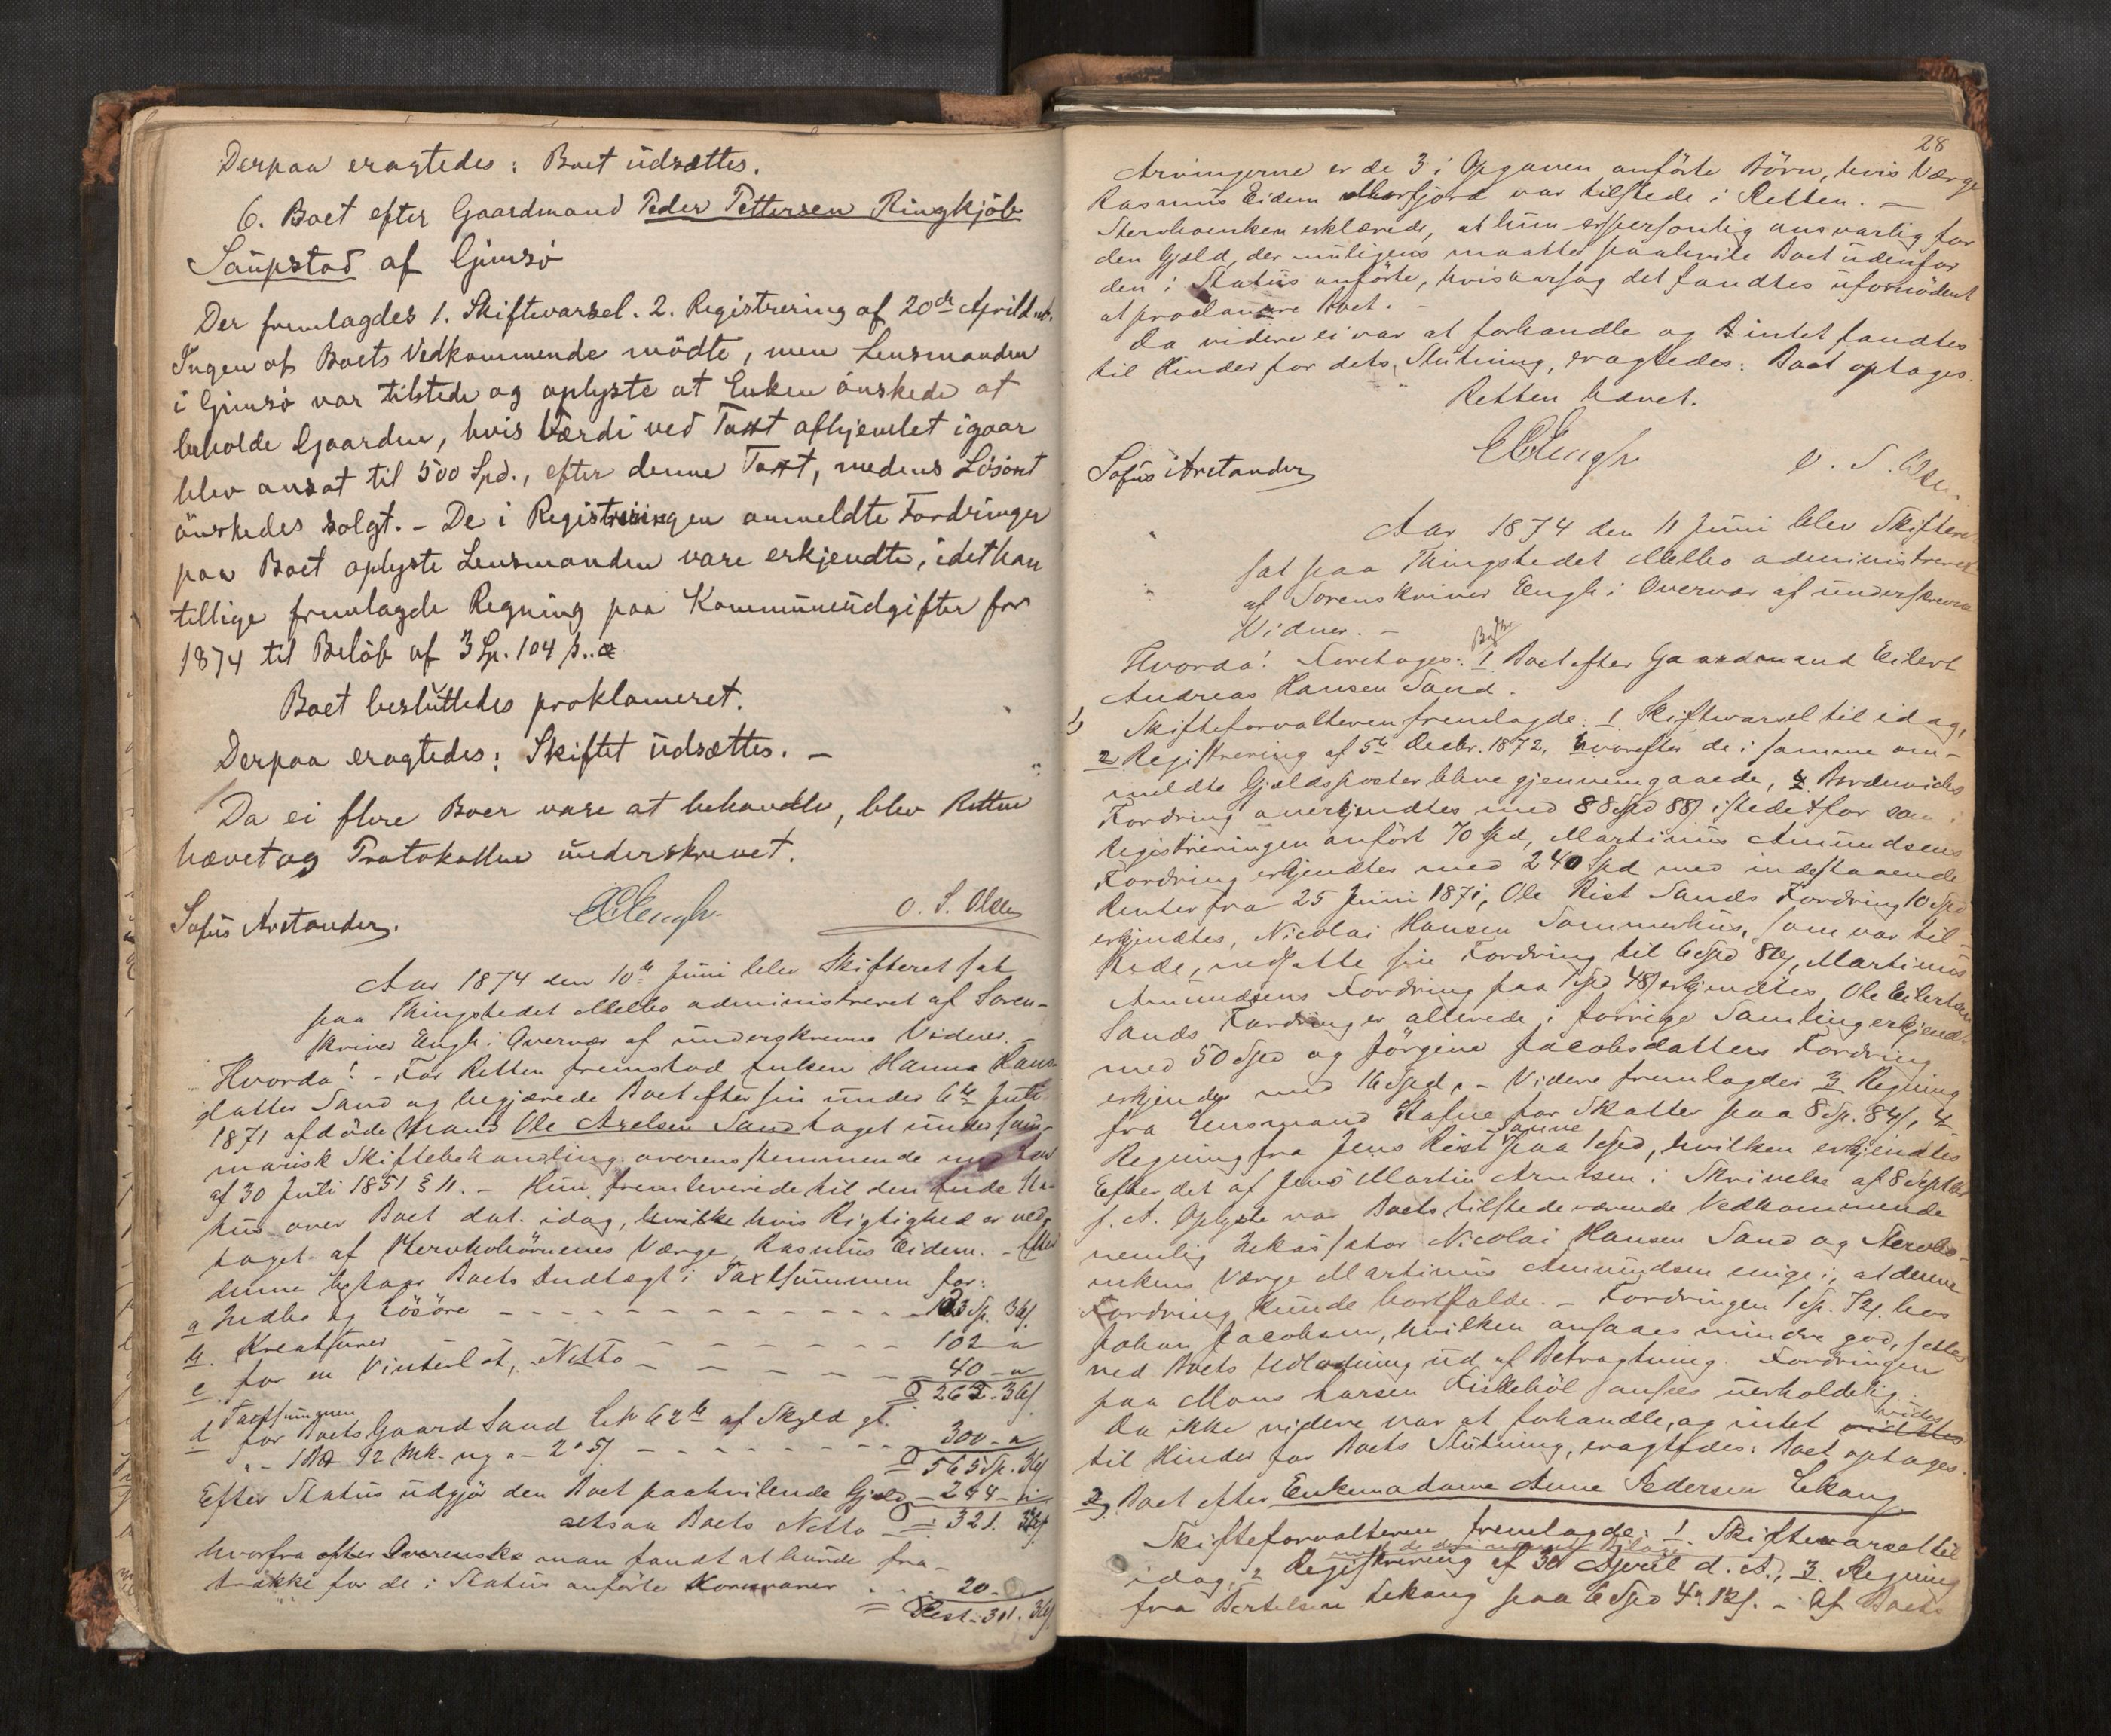 Derpaa eragtedes: Boet udsættes.
6. Boet efter Gaardmand Peder Pettersen Ringkjöb
Saupstad af Gimsö
Der fremlagdes 1. Skiftevarsel. 2. Registrering af 20de April d.
Ingen af Boets Vedkommende mödte, men Lensmanden
i Gimsö var tilstede og oplyste at Enken önskede at
beholde Gaarden, hvis Værdi ved Taxt afhjemlet igaar
blev ansat til 500 Spd., efter denne Taxt, medens Lösört
önskedes solgt. - De i Registreringen anmeldte Fordringer
paa Boet oplyste Lensmanden vare erkjendte, idet han
tillige fremlagde Regning paa Kommuneudgifter for
1874 til Belöb af 3 Sp. 104 s.
Boet besluttedes proklameret.
Derpaa eragtedes: Skiftet udsættes. -
Da ei flere Boer vare at behandle, blev Retten
hævet og Protokollen underskrevet.
Sofus Arctander. EEngh. O. S. Olsen
Aar 1874 den 10de Juni blev Skifteret sat
paa Thingstedet Melbo administreret af Soren-
skriver Engh i Overvær af underskrevne Vidner.
Hvorda! - For Retten fremstod Enken Hanna Hans
datter Sand og begjærede Boet efter sin under 6te Juli
1871 afdöde Mand Ole Axelsen Sand taget under sum-
marisk Skiftebehandling overensstemmende med Lov
af 30 Juli 1851 § 11. - Hun fremleverede til den Ende Sta-
tus over Boet dat. idag, hvilke hvis Rigtighed er ved-
taget af Stervbobörnenes Værge Rasmus Eidem. - Efter
denne bestaar Boets Indtægt i Taxtsummen for:
a Indbo og Lösöre - - - 123 Sp. 36 s.
b. Kreaturer - - - 102 - "
c. for en Vinterbåt, Netto - - - 40 - "
265 - 36 s.
Taxtsummen
d for Boets Gaard Sand L. No 62 af Skyld gl.
" - 1 2 Mk. ny " - 2 " 5 s. - - - 300 - "
= 565 Sp. 36 s.
Efter Status udgjör den Boet paahvilende Gjæld - 244 - "
altsaa Boets Netto = 321. 36 s.
hvorfra efter Overenskomst man fandt at burde fra-
trække for de i Status anförte 20 -
= Rest - 301. 36 s.
28
Arvingerne er de 3 i Opgaven anförte Börn, hvis Værge
Rasmus Eidem Morfjord var tilstede i Retten. -
Stervboenken erklærede, at hun er personlig ansvarlig for
den Gjæld, der muligens maatte paahvile Boet udenfor
den i Status anförte, hvisaarsag det fandtes ufornödent
at proclamere Boet. -
Da videre ei var at forhandle og intet fandtes
til Hinder for dets Slutning, eragtedes: Boet optages.
Retten hævet.
Sofus Arctander EEngh. O. S. Olsen
Aar 1874 den 11 Juni blev Skifteret
sat paa Thingstedet Melbo administreret
af Sorenskriver Engh i Overvær af underskrevne
Vidner. -
Hvorda! Foretoges: 1 Boet efter Gaardmand Eilert
Andreas Hansen Sand.
1) Skifteforvalteren fremlagde: 1 Skiftevarsel til idag,
2 Registrering af 5te Decbr. 1872, hvorefter de i samme an-
meldte Gjældsposter bleve gjennemgaaede,
Fordring anerkjendtes med 88 Spd 88 s istedetfor som i
Registreringen anfört 70 Spd, Martinus Amundsens
Fordring erkjendtes med 240 Spd med indestaaende
Renter fra 25 Juni 1871, Ole Rist Sands Fordring 10 Spd
erkjendtes, Nicolai Hansen Sommerhus, som var til-
stede, nedsatte sin Fordring til 6 Spd 80 s, Martinus
Amundsens Fordring paa 1 Spd 48 s erkjendtes, Ole Eilertsen
Sands Fordring er allerede i forrige Samling erkjendt
med 50 Spd og Jörgine Jacobsdatters Fordring
erkjendes med 16 Spd. - Videre fremlagdes 3 Regning
fra Lensmand for Skatter paa 8 Sp. 84 s, 4
Regning fra Jens Rist Sanne paa 1 Spd, hvilken erkjendtes
Efter det af Jens Martin Arntsen i Skrivelse af 8 Septbr
f. A. Oplyste var Boets tilstedeværende Vedkommende
nemlig Inkassator Nicolai Hansen Sand og Stervbo-
enkens Værge Martinus Amundsen enige i, at denne
Fordring kunde bortfalde. - Fordringen 1 Sp. 72 s. hos
Johan Jacobsen, hvilken ansaaes mindre god, sættes
ved Boets Udlodning ud af Betragtning. Fordringen
paa Mons Larsen Fiskeböl ansees uerholdelig.
Da ikke videre var at forhandle, og intet vides
til Hinder for Boets Slutning, eragtedes: Boet optages.
2) Boet efter Enkemadame Anne Pedersen Lekang
Skifteforvalteren fremlagde: 1. Skiftevarsel til
idag, 2 Registrering af 30 April d. A., 3. Regning
fra Bertelsen Lekang paa 6 Spd 4 " 12 s. - Af Boets